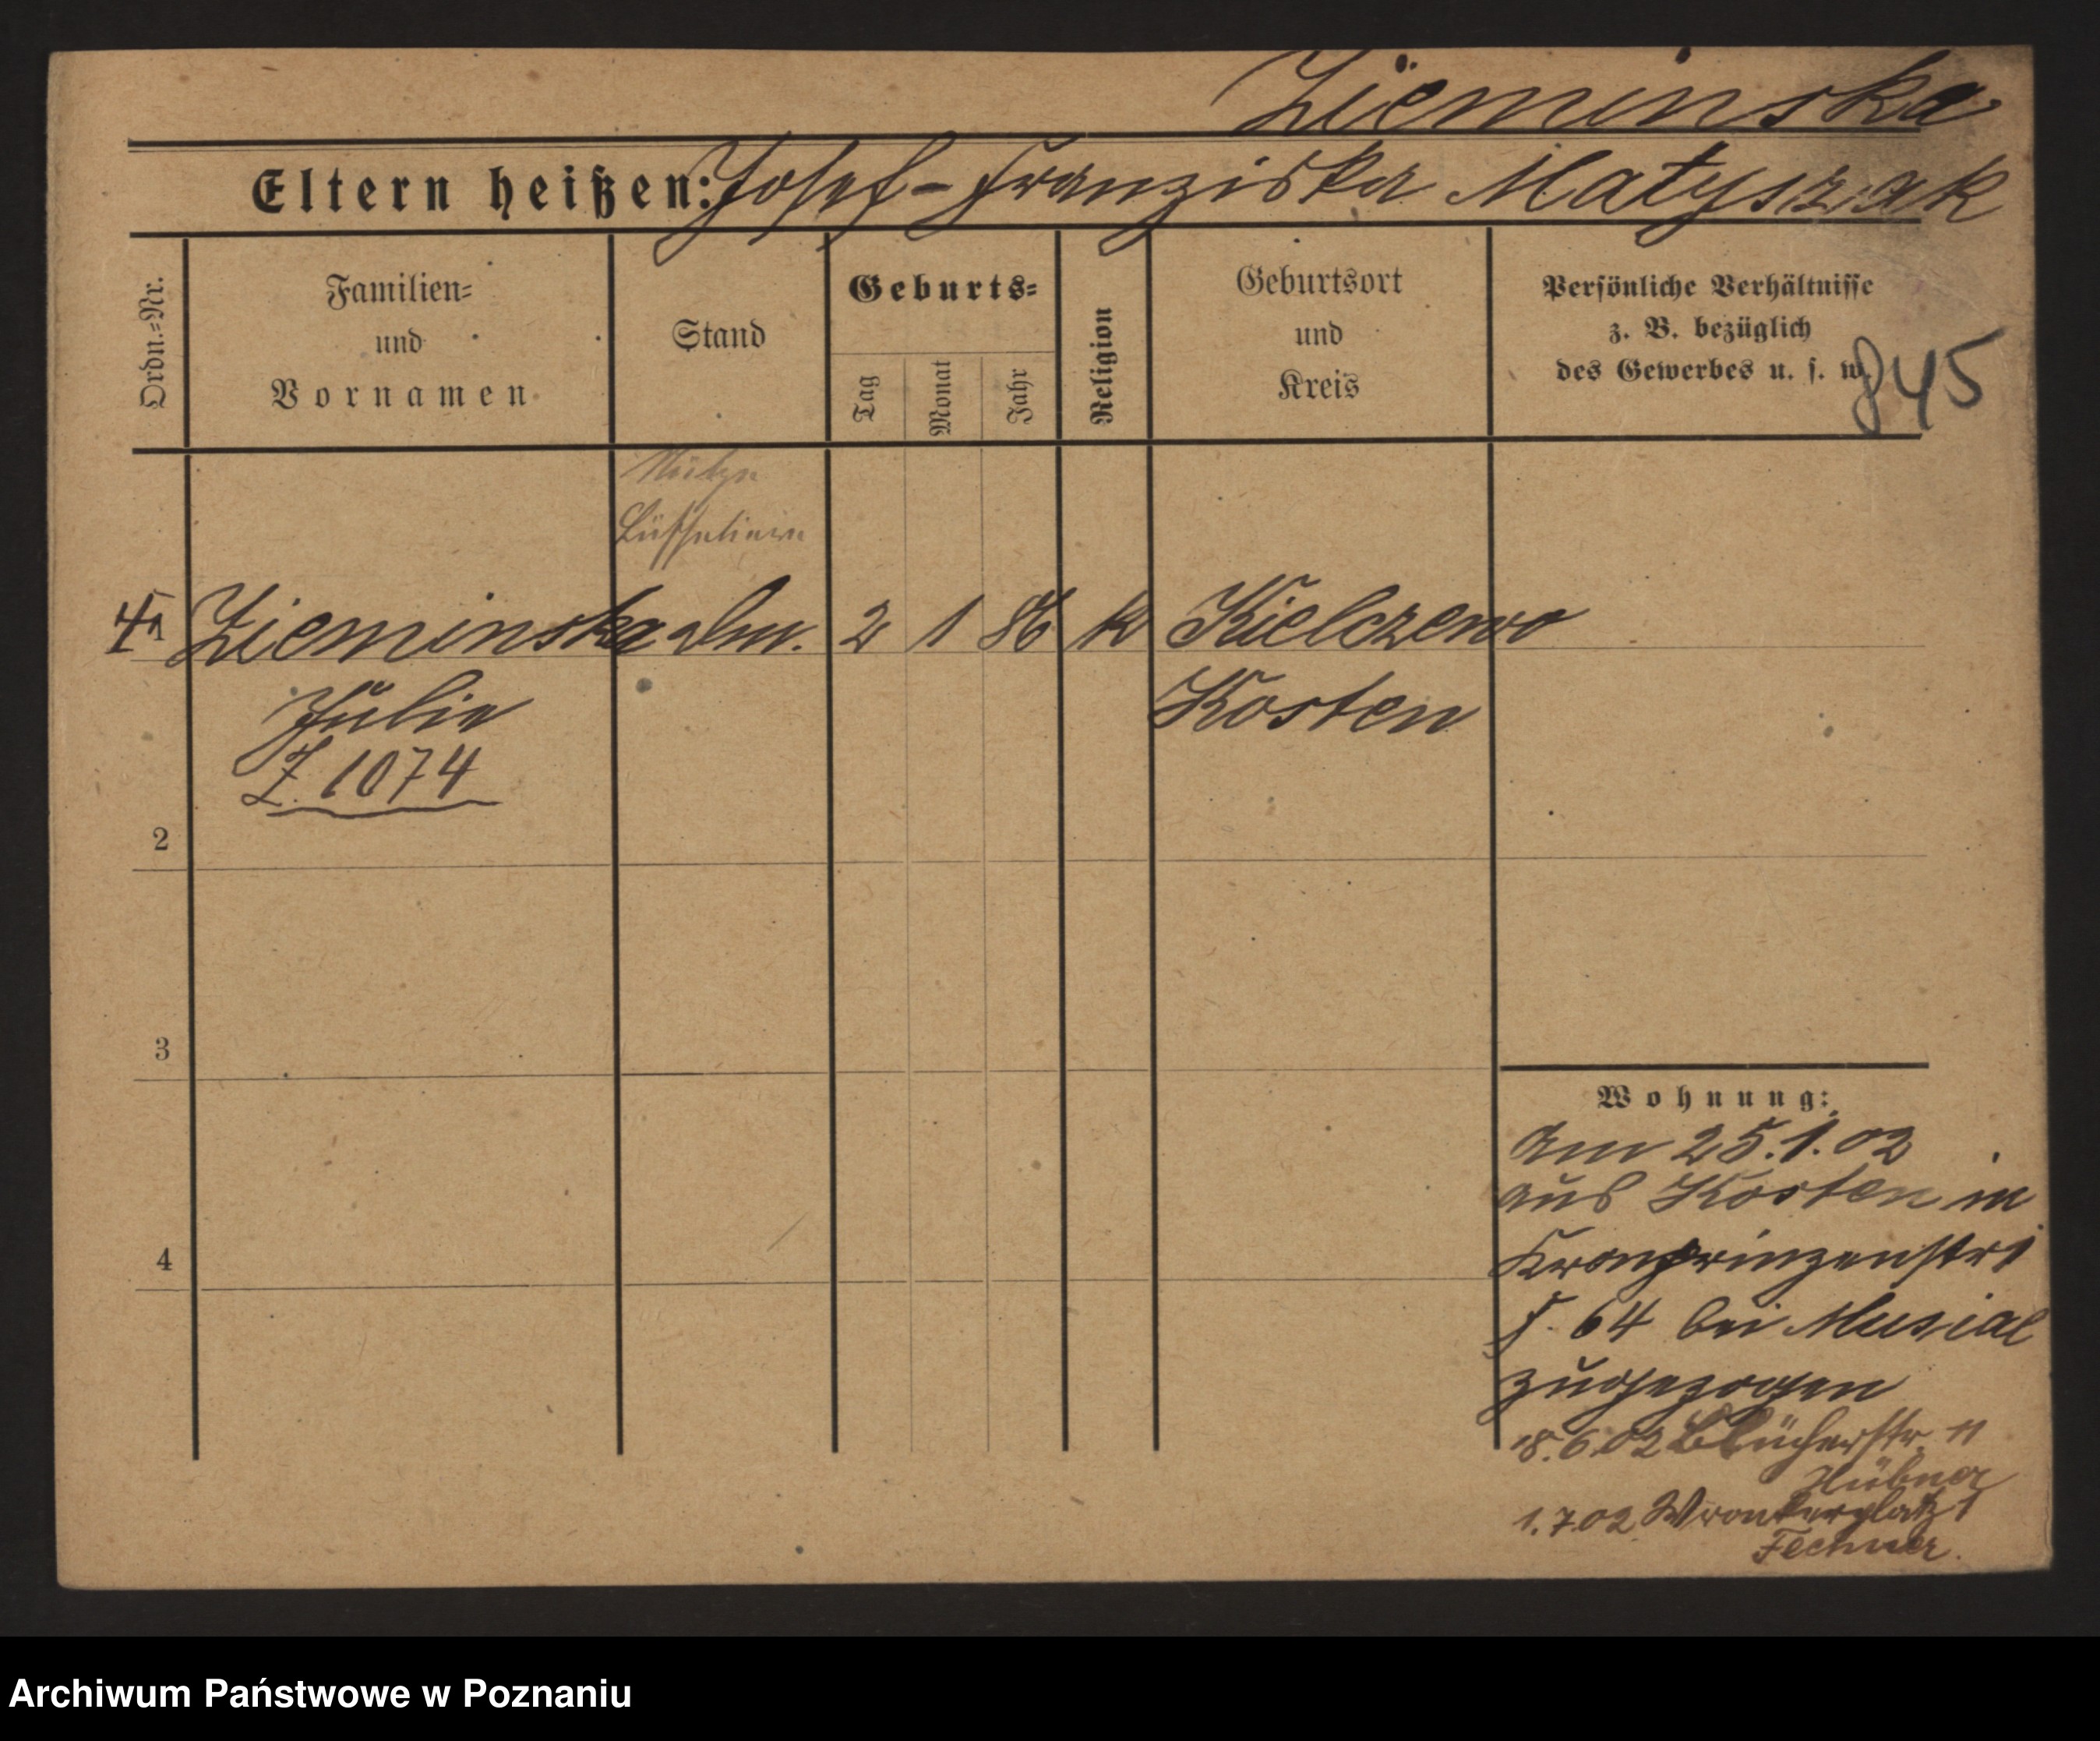 Zieminska
Eltern heißen: Josef - Franziska Matyszak
Ordn.=Nr.
Familien=
und
Vornamen
Stand
Geburts=
Tag
Monat
Jahr
Religion
Geburtsort
und
Kreis
Persönliche Verhältnisse
z. B. bezüglich
des Gewerbes u. s. w.
845
Zieminska 2 1 86 k Kielczewo
Julie Kosten
Z. 1074
2
3
4
Wohnung:
Am 25.1.02
aus Kosten in
Kronprinzenstr
64 bei Musial
zugezogen
18.6.02 Blücherstr. 11
Hübner
1.7.02 Wronkerplatz 1
Fechner.
Archiwum Państwowe w Poznaniu